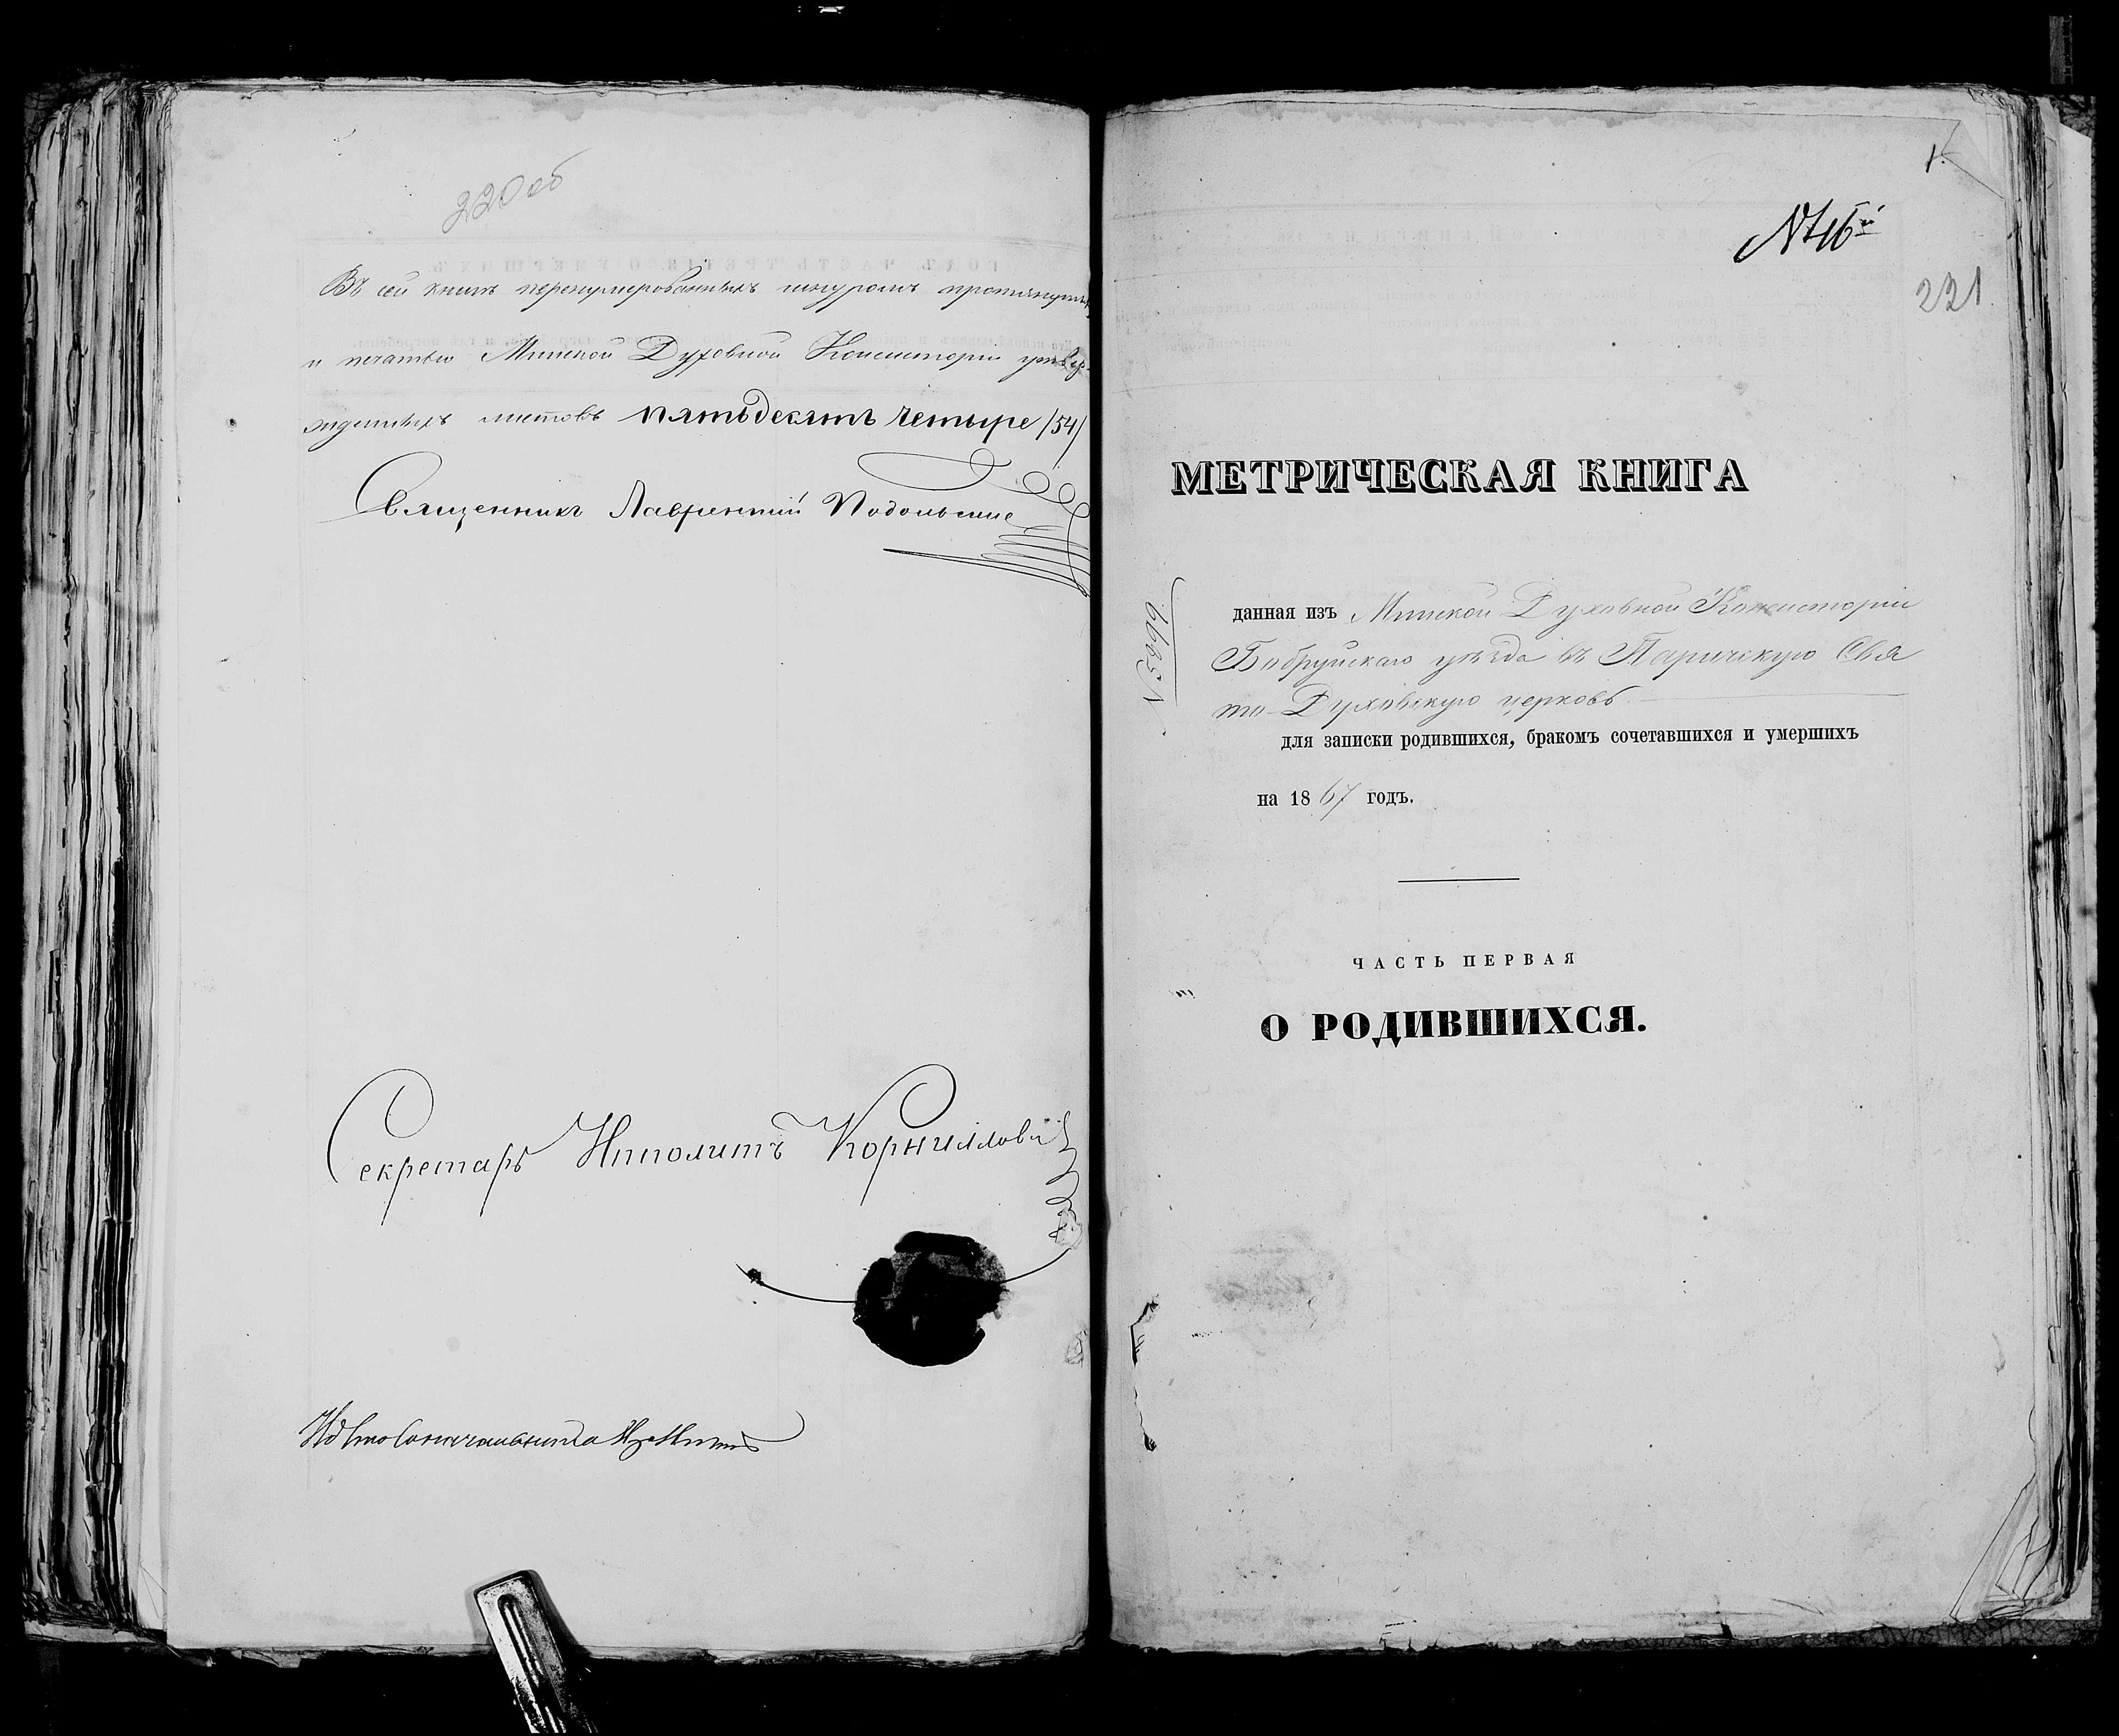 220 об
Въ сей книгѣ перенумерованныхъ шнуромъ протянутыхъ
и печатью Минской Духовной Консисторіи утвер-
жденныхъ листовъ пятьдесятъ четыре /54/
Священникъ Лаврентій Подольскіе
Секретарь Ипполитъ Корниллови
1.
№46й
221.
МЕТРИЧЕСКАЯ КНИГА
данная изъ Минской Духовной Консисторіи
Бобруйскаго уѣзда въ Паричскую Свя
то-Духовскую церковь.
для записки родившихся, бракомъ сочетавшихся и умершихъ
на 1867 годъ.
ЧАСТЬ ПЕРВАЯ
О РОДИВШИХСЯ.